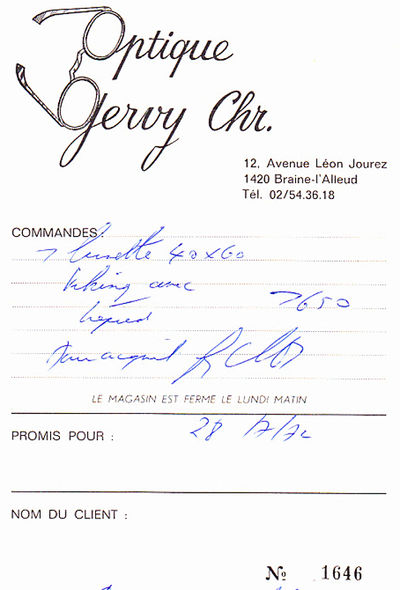 Optique
Gervy Chr.
12, Avenue Léon Jourez
1420 Braine-l'Alleud
Tél. 02/54.36.18
COMMANDES:
1 lunette 40x60
Viking avec
trépied 7650
Pour acquit
LE MAGASIN EST FERME LE LUNDI MATIN
PROMIS POUR : 28
NOM DU CLIENT :
Nº 1646